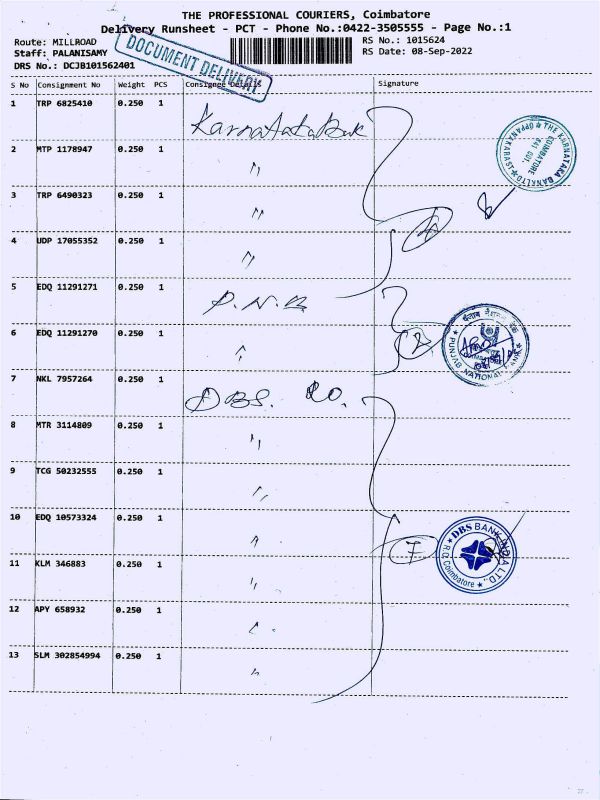 THE PROFESSIONAL COURIERS, Coimbatore
Delivery Runsheet - PCT - Phone No.:0422-3505555 - Page No.:1
Route: MILLROAD
Staff: PALANISAMY
DRS No.: DCJB101562401
DOCUMENT DELIVERY
RS No.: 1015624
RS Date: 08-Sep-2022
S No Consignment No Weight PCS Consignee Details Signature
1 TRP 6825410 0.250 1 Karnataka Bank
2 MTP 1178947 0.250 1 〃
3 TRP 6490323 0.250 1 〃
4 UDP 17055352 0.250 1 〃
5 EDQ 11291271 0.250 1 P.N.B
6 EDQ 11291270 0.250 1 〃
7 NKL 7957264 0.250 1 DBS. RO.
8 MTR 3114809 0.250 1 〃
9 TCG 50232555 0.250 1 〃
10 EDQ 10573324 0.250 1 〃
11 KLM 346883 0.250 1 〃
12 APY 658932 0.250 1 〃
13 SLM 302854994 0.250 1 〃
4
2
7
THE KARNATAKA BANK LTD
OPPANAKARA ST
COIMBATORE
641 001.
पंजाब नैशनल बैंक
PUNJAB NATIONAL BANK
DBS BANK INDIA LTD.,
R.O. Coimbatore